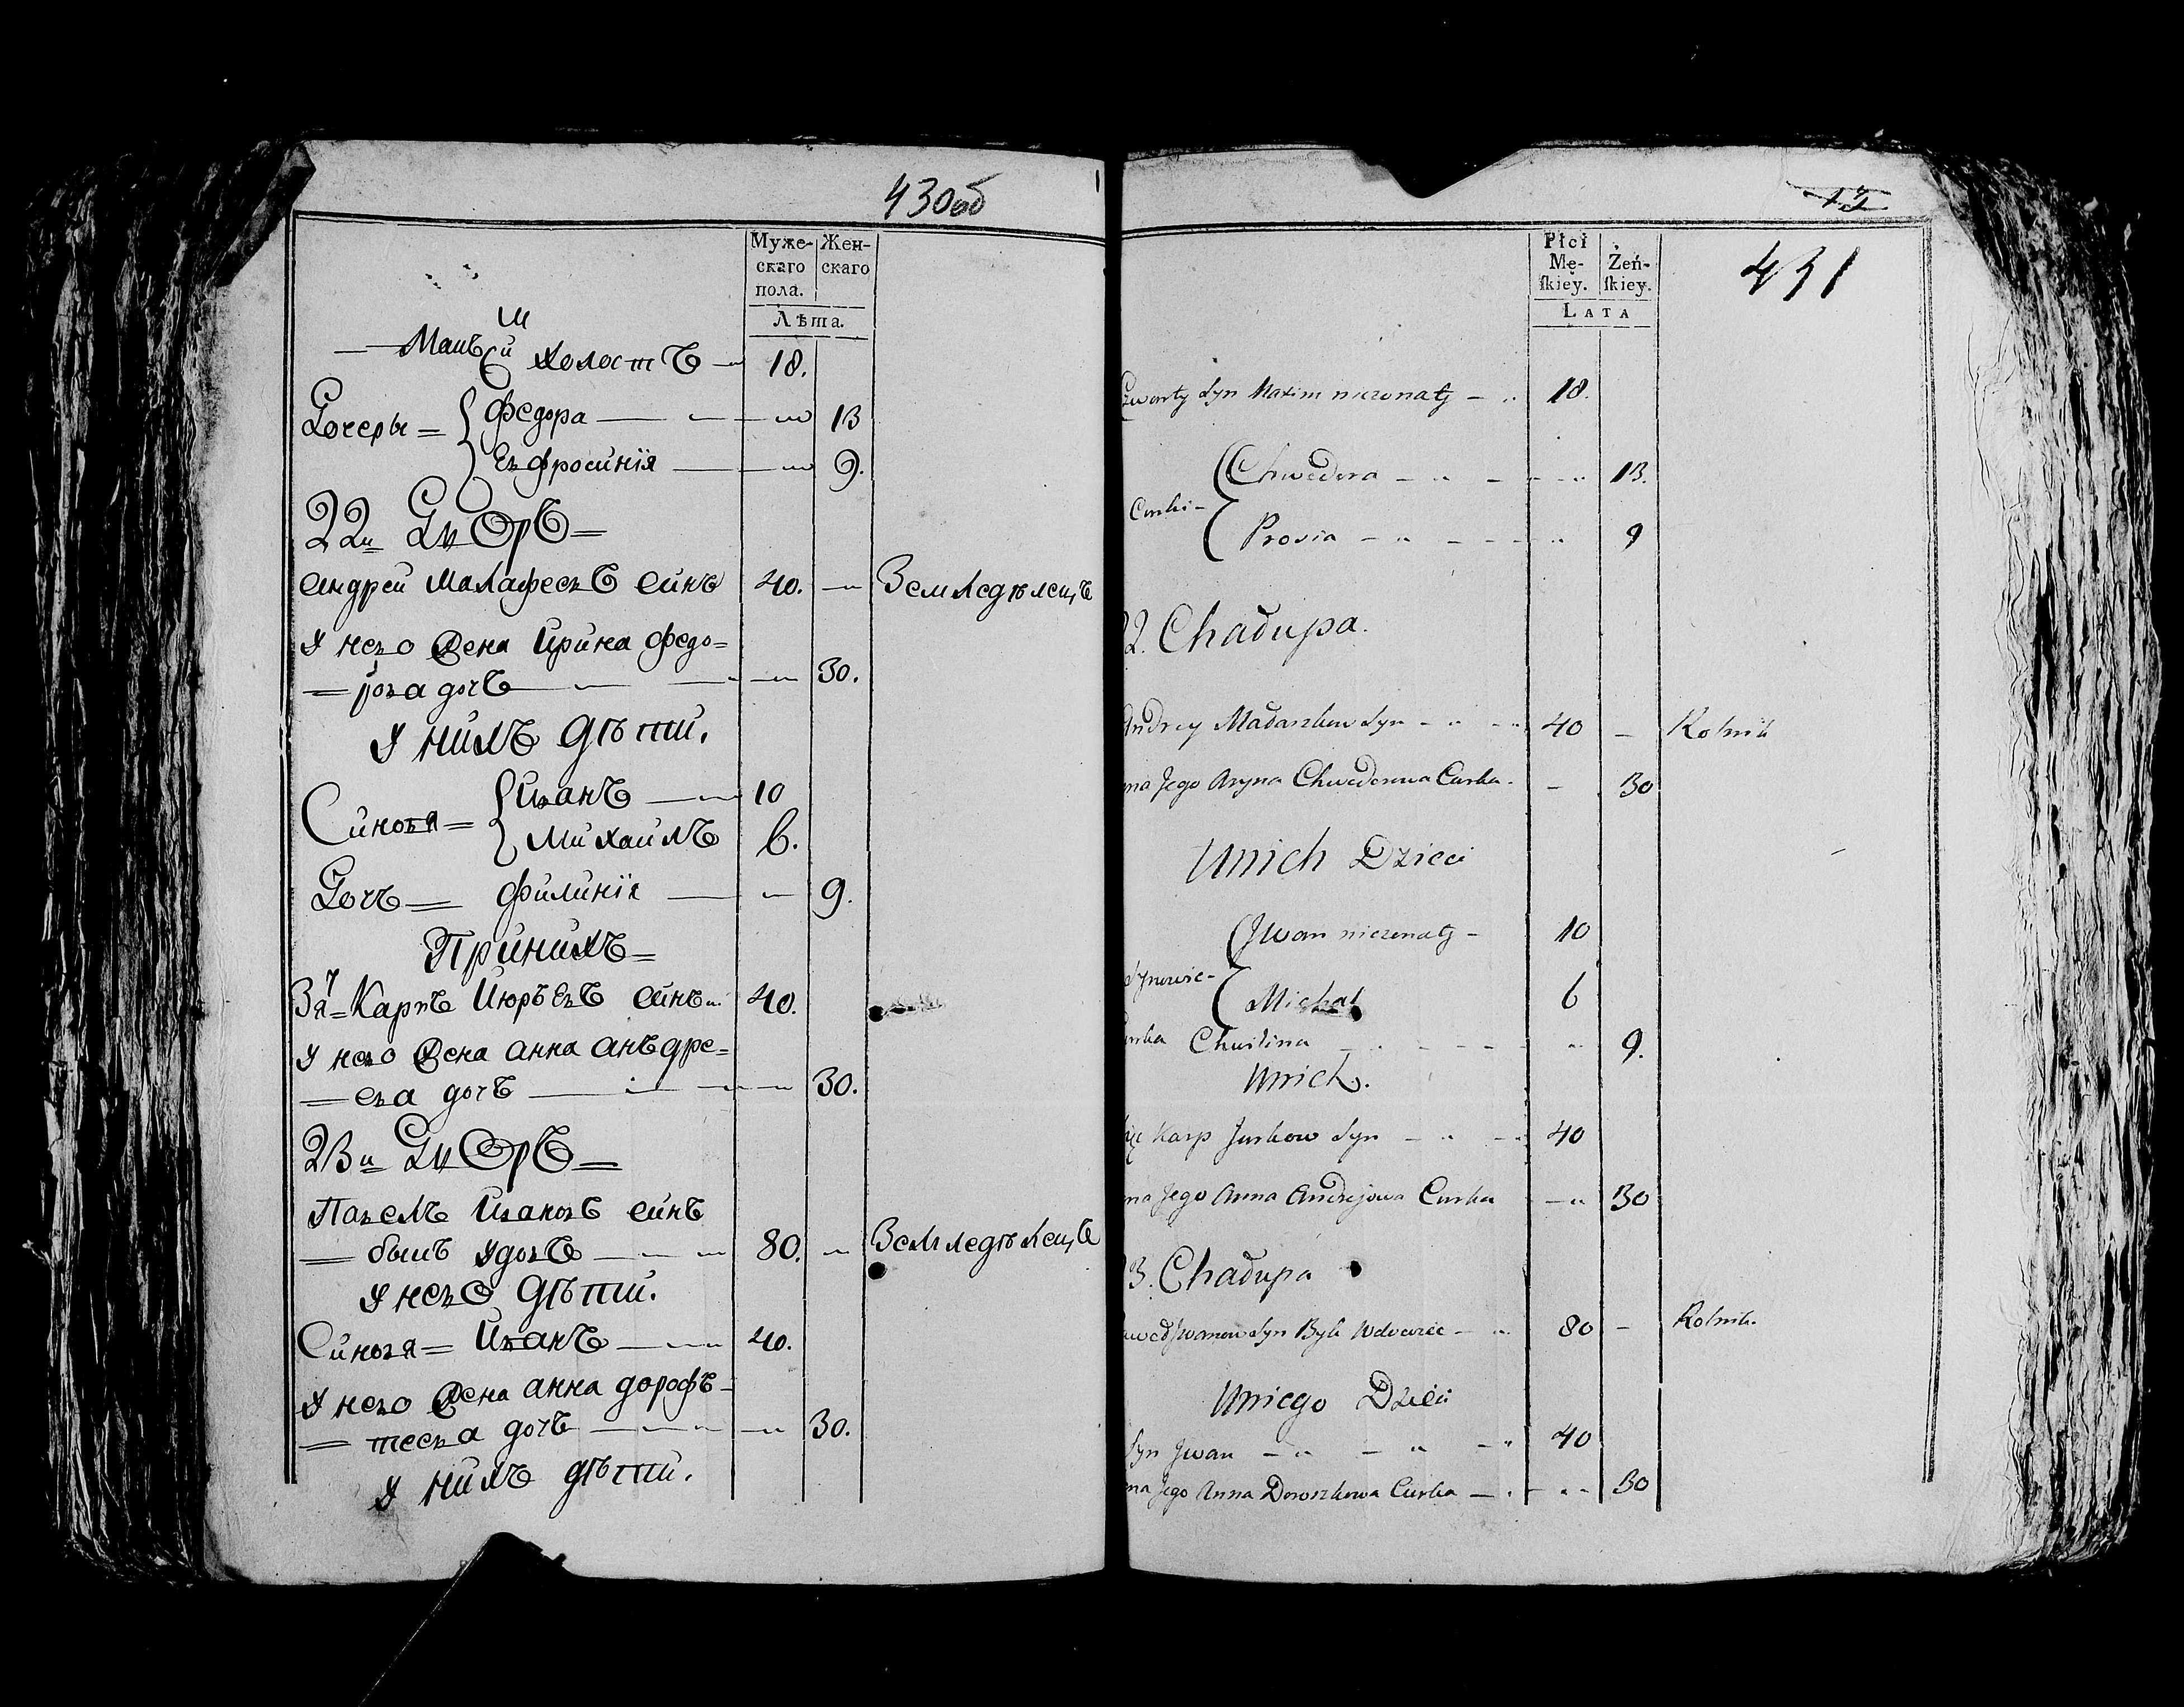 430об
Муже-
скаго
пола.
Жен-
скаго
Лѣта.
холостъ 18.
Дочеры = Федора 13
Евфросинїя 9.
22й Дворъ =
Андрей Малафеевъ синъ 40. Земледѣлецъ
У него Жена Ирина Федо=
=рова дочъ 30.
У нихъ дѣти.
Синовя = Иванъ 10
Михаилъ 6.
Дочъ = Филинїя 9.
Принихъ =
Зя = Карпъ Июрьевъ синъ 40.
У него Жена Анна Анъдре=
=ева дочъ 30.
23й Дворъ =
Павелъ Ивановъ синъ
= бывъ Удовъ 80. Земледѣлецъ
У него Дѣти.
Синовя = Иванъ 40.
У него Жена Анна дорофъ-
= теева дочъ 30.
У нихъ дѣти.
17
431
Płci
Mę-
ſkiey.
Żeń-
ſkiey.
LATA
Czwarty Syn Maxim niezonaty 18.
Chwedora 13.
Curki -
Prosia 9
22. Chałupa.
Andrey Małaszkow Syn 40 - Rolnik
na Jego Aryna Chwedorowa Curka - 30
Unich Dzieci
Jwan niezonaty - 10
Synowie -
Michał 6
Curka Chwilina 9.
Unich.
Karp Jurkow Syn 40
na Jego Anna Andrejowa Curka 30
23. Chałupa
Jwanow Syn Był Wdowiec 80 - Rolnik.
Uniego Dzieci
Syn Jwan 40
na Jego Anna Doroszkowa Curka 30